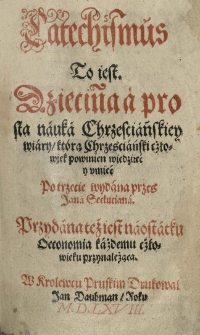 Catechismus
To iest.
Dziecinna a pro
sta nauká Chrześciáńskiey
wiáry/ którą Chrześciáński czło-
wiek powinien wiedzieć
y vmieć
Po trzecie wydána przez
Jana Secluciana.
Przydána też iest náostátku
Oeconomia káżdemu czło-
wieku przynależąca.
W Krolewcu Pruskim Drukował
Jan Daubman/ Roku
M.D.LXVIII.